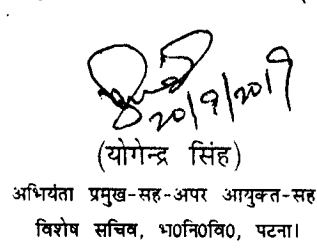 20/9/2019
(योगेन्द्र सिंह)
अभियंता प्रमुख-सह-अपर आयुक्त-सह
विशेष सचिव, भ०नि०वि०, पटना।